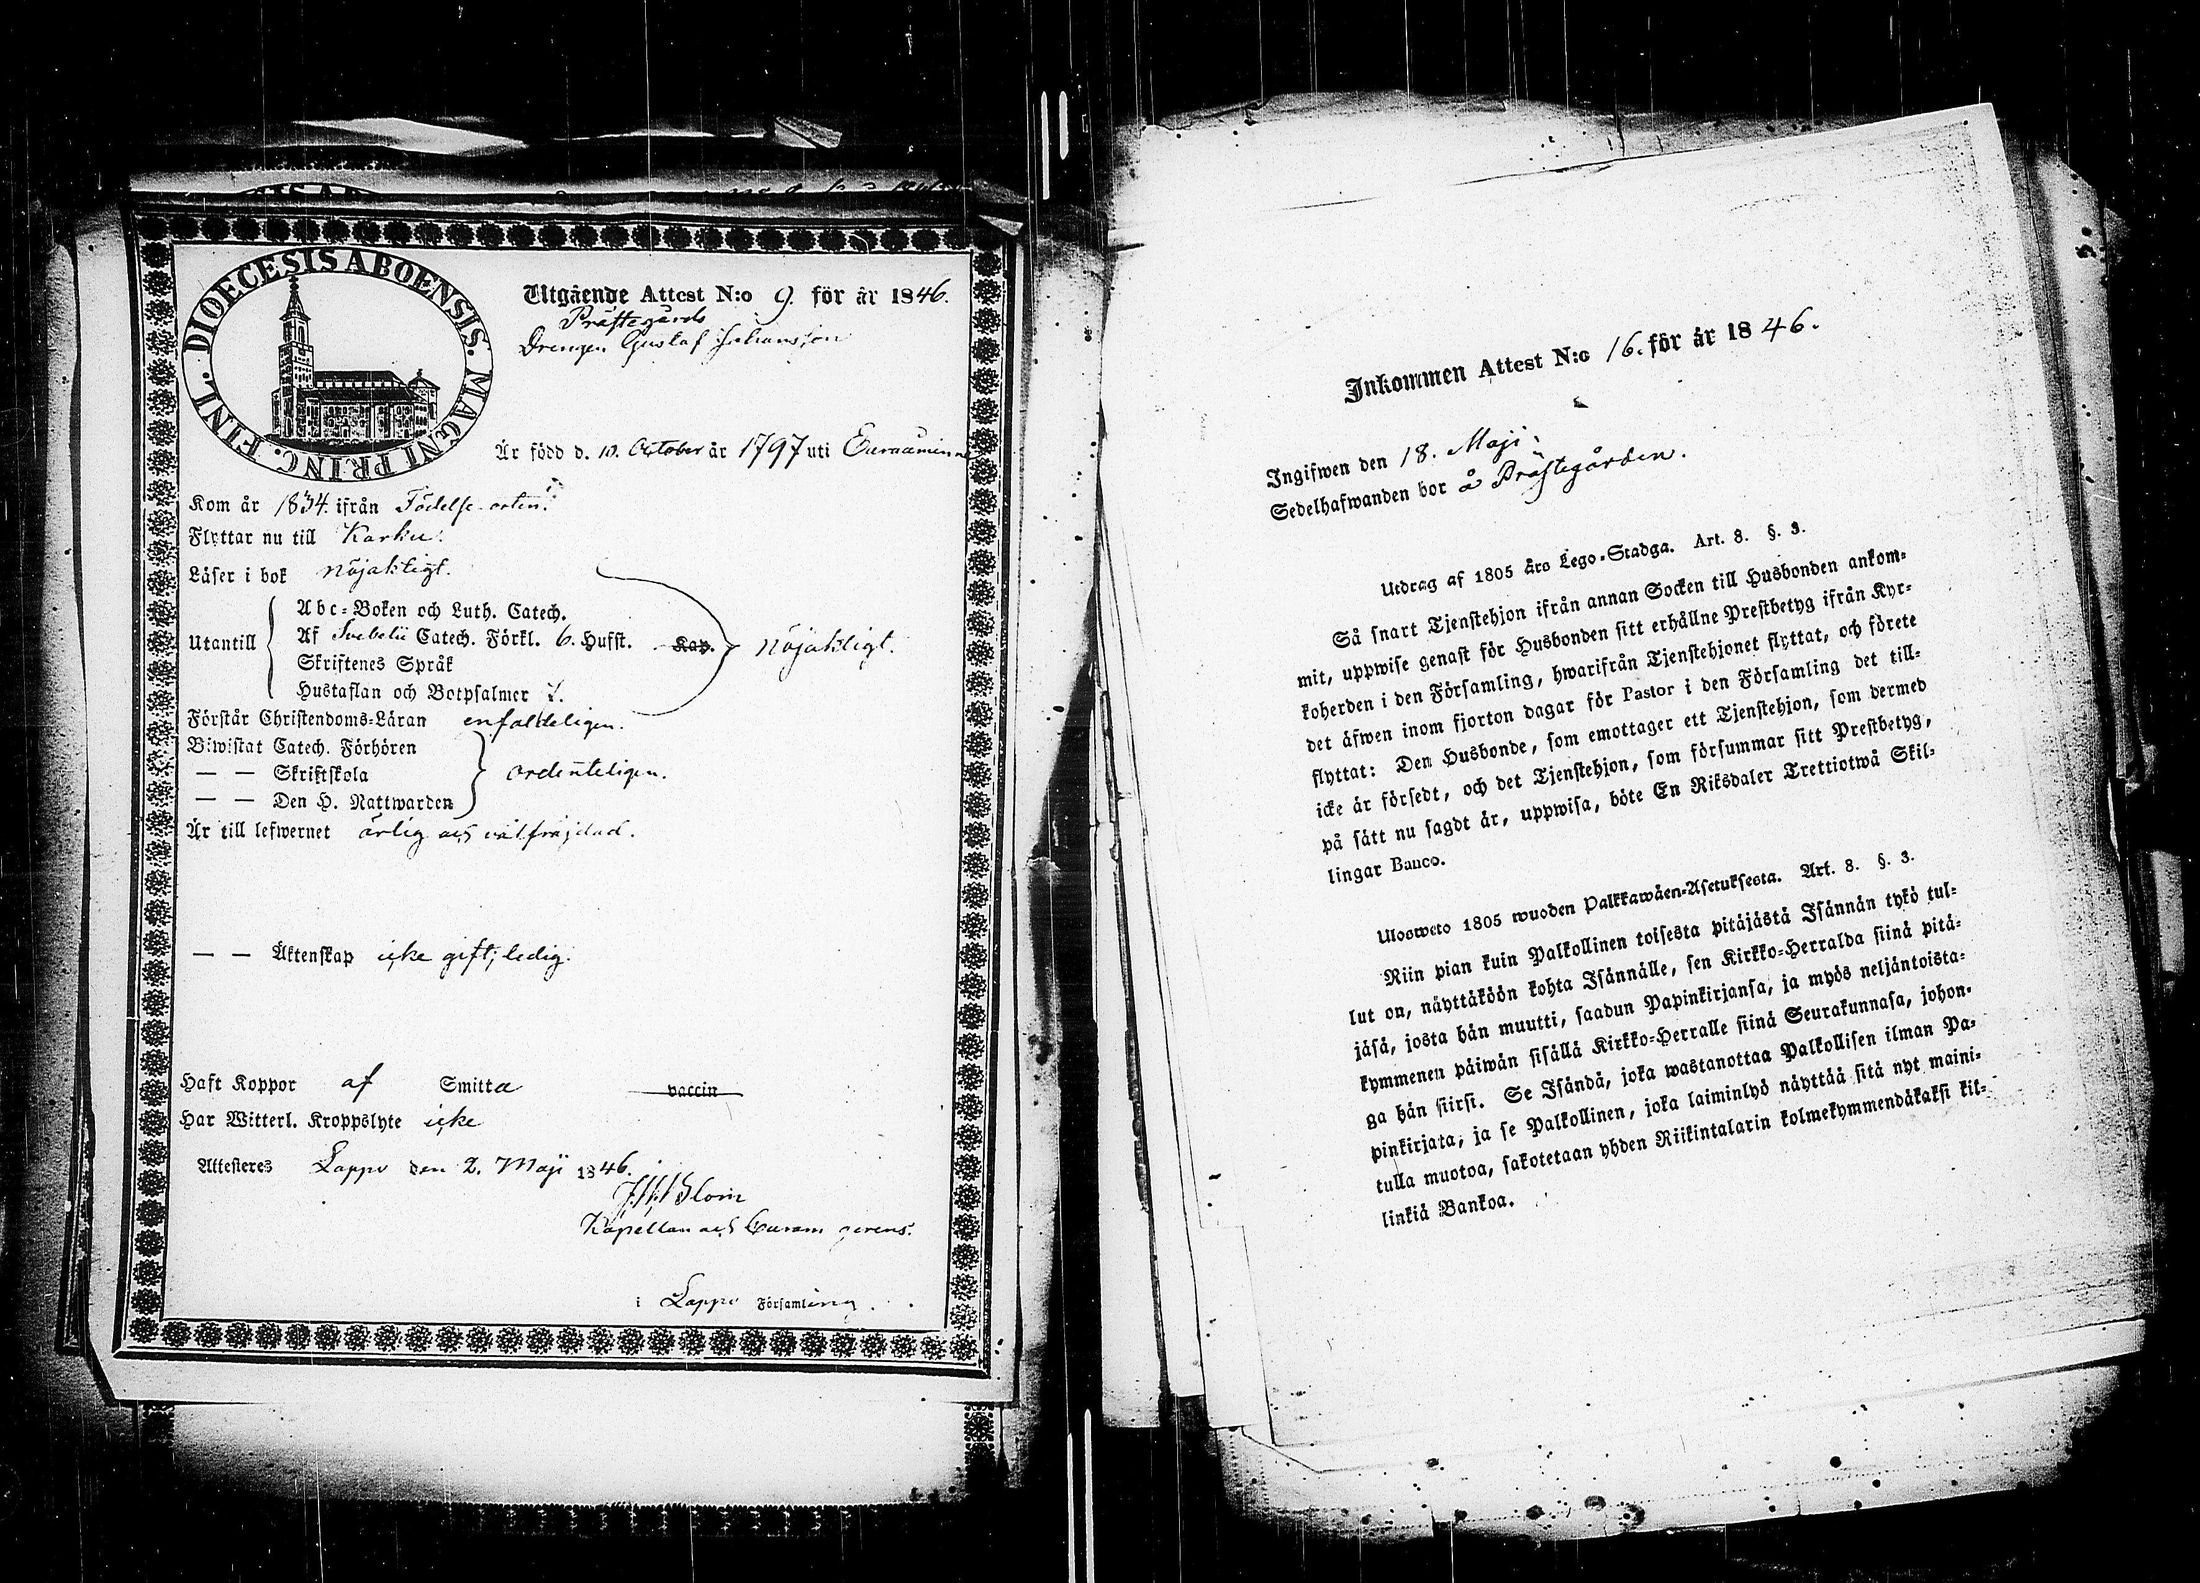 DIOECESIS ABOENSIS. MAGNI PRINC. FINL.
Utgående Attest N:o 9. för år 1846.
Präftegårds
Drengen Gustaf Johansson
Är född d. 10. October år 1797 uti Euraåminne
Kom år 1834. ifrån Födelse-orten.
Flyttar nu till Karku.
Läser i bok nöjaktigt.
Utantill
Abc-Boken och Luth. Catech.
Af Svebelii Catech. Förkl. 6. Hufst. Kap.
Skriftenes Språk
Hustaflan och Botpsalmer 7.
nöjaktigt.
Förstår Christendoms-Läran enfaldeligen.
Biwistat Catech. Förhören
— — Skriftskola
— — Den H. Nattwarden
ordenteligen.
Är till lefwernet ärlig och välfräjdad.
— — Äktenskap icke gift; ledig.
Haft Koppor af Smitta vaccin
Har Witterl. Kroppslyte icke
Attesteres Lappo den 2. Maji 1846.
Blom
Kapellan och Curam gerens.
i Lappo Församling.
Inkommen Attest N:o 16. för år 1846.
Ingifwen den 18. Maji.
Sedelhafwanden bor å Prästegården.
Utdrag af 1805 års Lego-Stadga. Art. 8. §. 3.
Så snart Tjenstehjon ifrån annan Socken till Husbonden ankom-
mit, uppwise genast för Husbonden sitt erhållne Prestbetyg ifrån Kyr-
koherden i den Församling, hwarifrån Tjenstehjonet flyttat, och förete
det äfwen inom fjorton dagar för Pastor i den Församling det till-
flyttat: Den Husbonde, som emottager ett Tjenstehjon, som dermed
icke är försedt, och det Tjenstehjon, som försummar sitt Prestbetyg,
på sätt nu sagdt är, uppwisa, böte En Riksdaler Trettiotwå Skil-
lingar Banco.
Ulosweto 1805 wuoden Palkkawäen-Asetuksesta. Art. 8. §. 3.
Niin pian kuin Palkollinen toisesta pitäjästä Isännän tykö tul-
lut on, näyttäköön kohta Isännälle, sen Kirkko-Herralda siinä pitä-
jäsä, josta hän muutti, saadun Papinkirjansa, ja myös neljäntoista-
kymmenen päiwän sisällä Kirkko-Herralle siinä Seurakunnasa, johon-
ga hän siirsi. Se Isändä, joka wastanottaa Palkollisen ilman Pa-
pinkirjata, ja se Palkollinen, joka laiminlyö näyttää sitä nyt maini-
tulla muotoa, sakotetaan yhden Riikintalarin kolmekymmendäkaksi kil-
linkiä Bankoa.